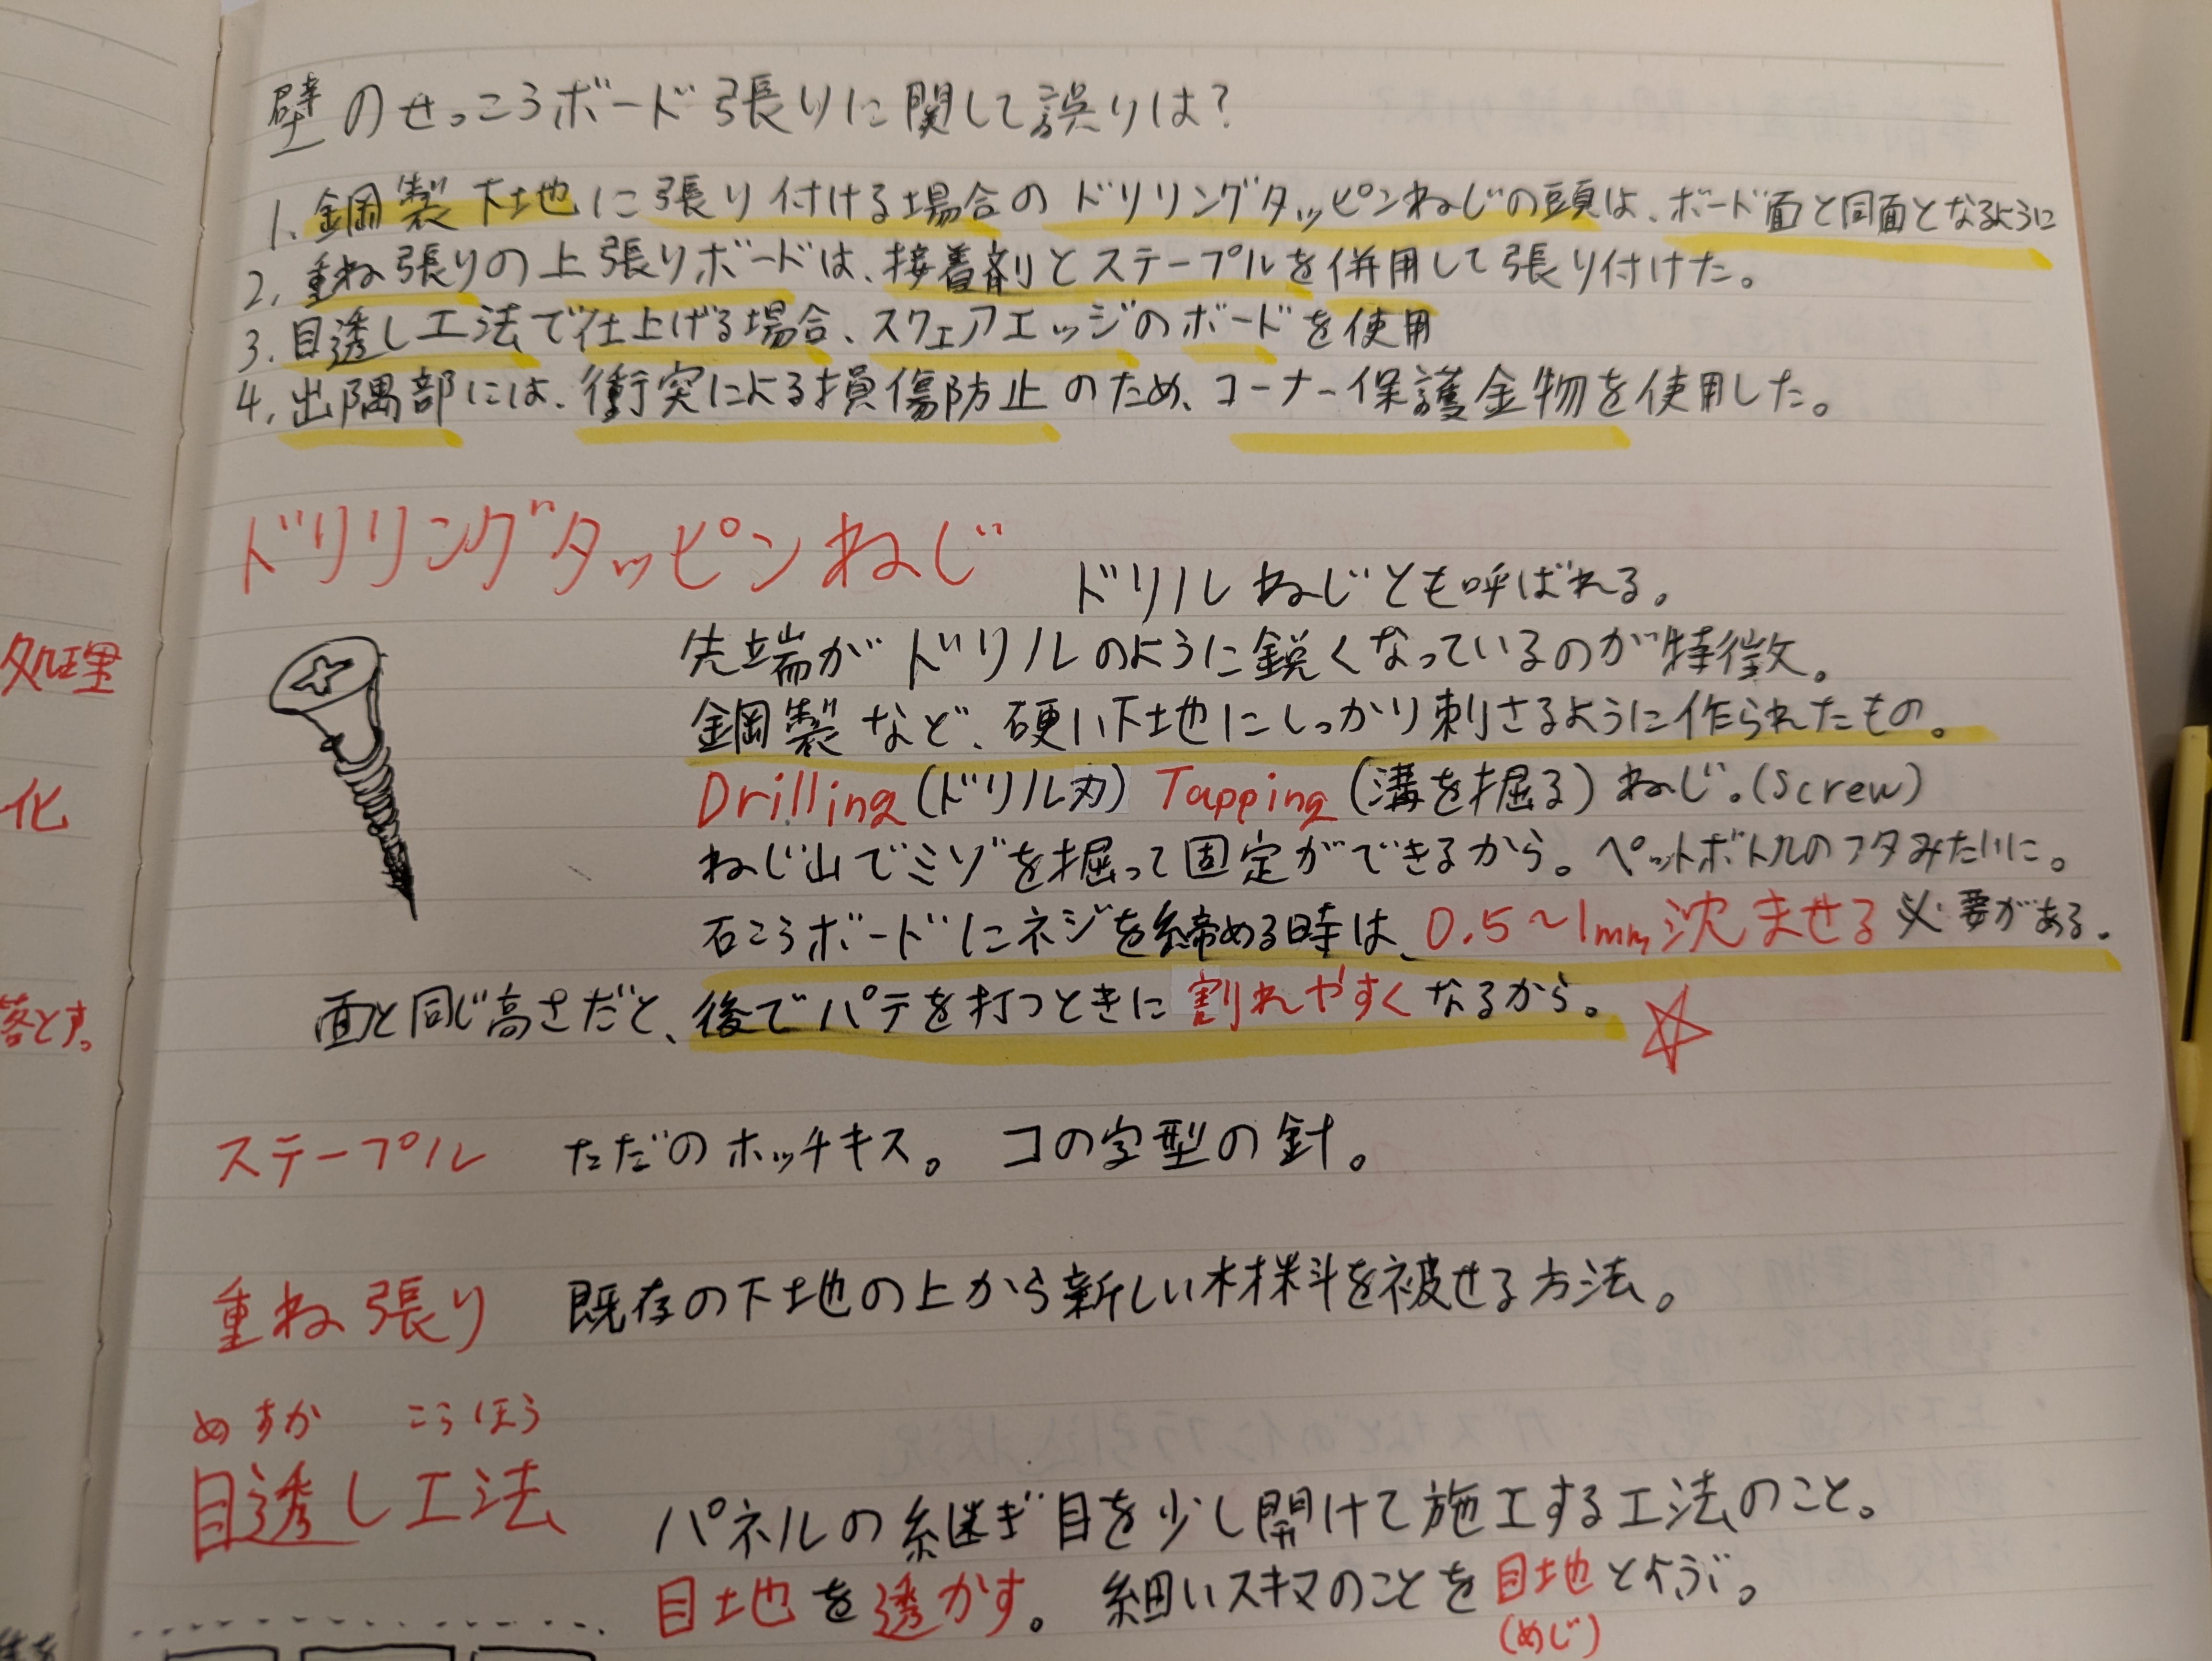 壁のせっこうボード張りに関して誤りは?
1. 鋼製下地に張り付ける場合のドリリングタッピンねじの頭は、ボード面と同面となるように
2. 重ね張りの上張りボードは、接着剤とステープルを併用して張り付けた。
3. 目透し工法で仕上げる場合、スクェアエッジのボードを使用
4. 出隅部には、衝突による損傷防止のため、コーナー保護金物を使用した。
ドリリングタッピンねじ
ドリルねじとも呼ばれる。
先端がドリルのように鋭くなっているのが特徴。
鋼製など、硬い下地にしっかり刺さるように作られたもの。
Drilling(ドリル刃) Tapping(溝を掘る)ねじ。(Screw)
ねじ山でミゾを掘って固定ができるから。ペットボトルのフタみたいに。
石こうボードにネジを締める時は、0.5〜1mm沈ませる必要がある。
面と同じ高さだと、後でパテを打つときに割れやすくなるから。
ステープル ただのホッチキス。 コの字型の針。
重ね張り 既存の下地の上から新しい材料を被せる方法。
めすか こうほう
目透し工法
パネルの継ぎ目を少し開けて施工する工法のこと。
目地を透かす。 細いスキマのことを目地とよぶ。
(めじ)
処理
化
落とす。